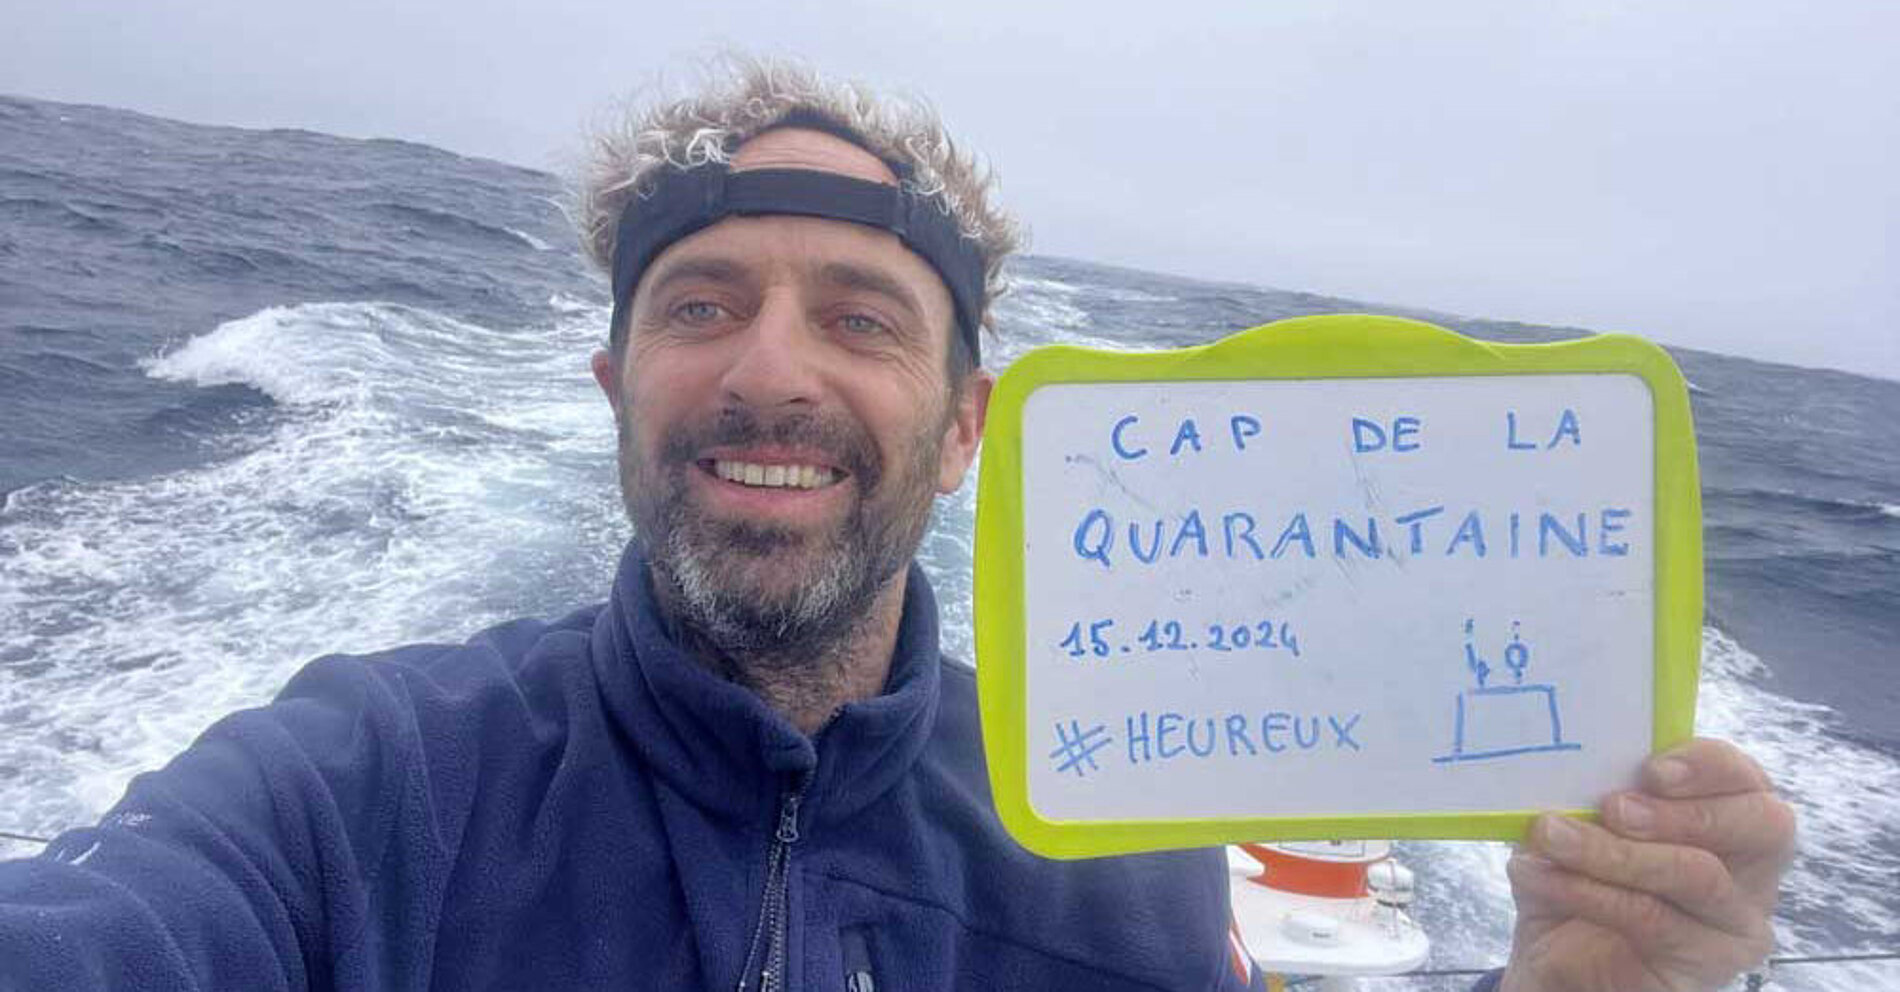 CAP DE LA
QUARANTAINE
15.12.2024
#HEUREUX